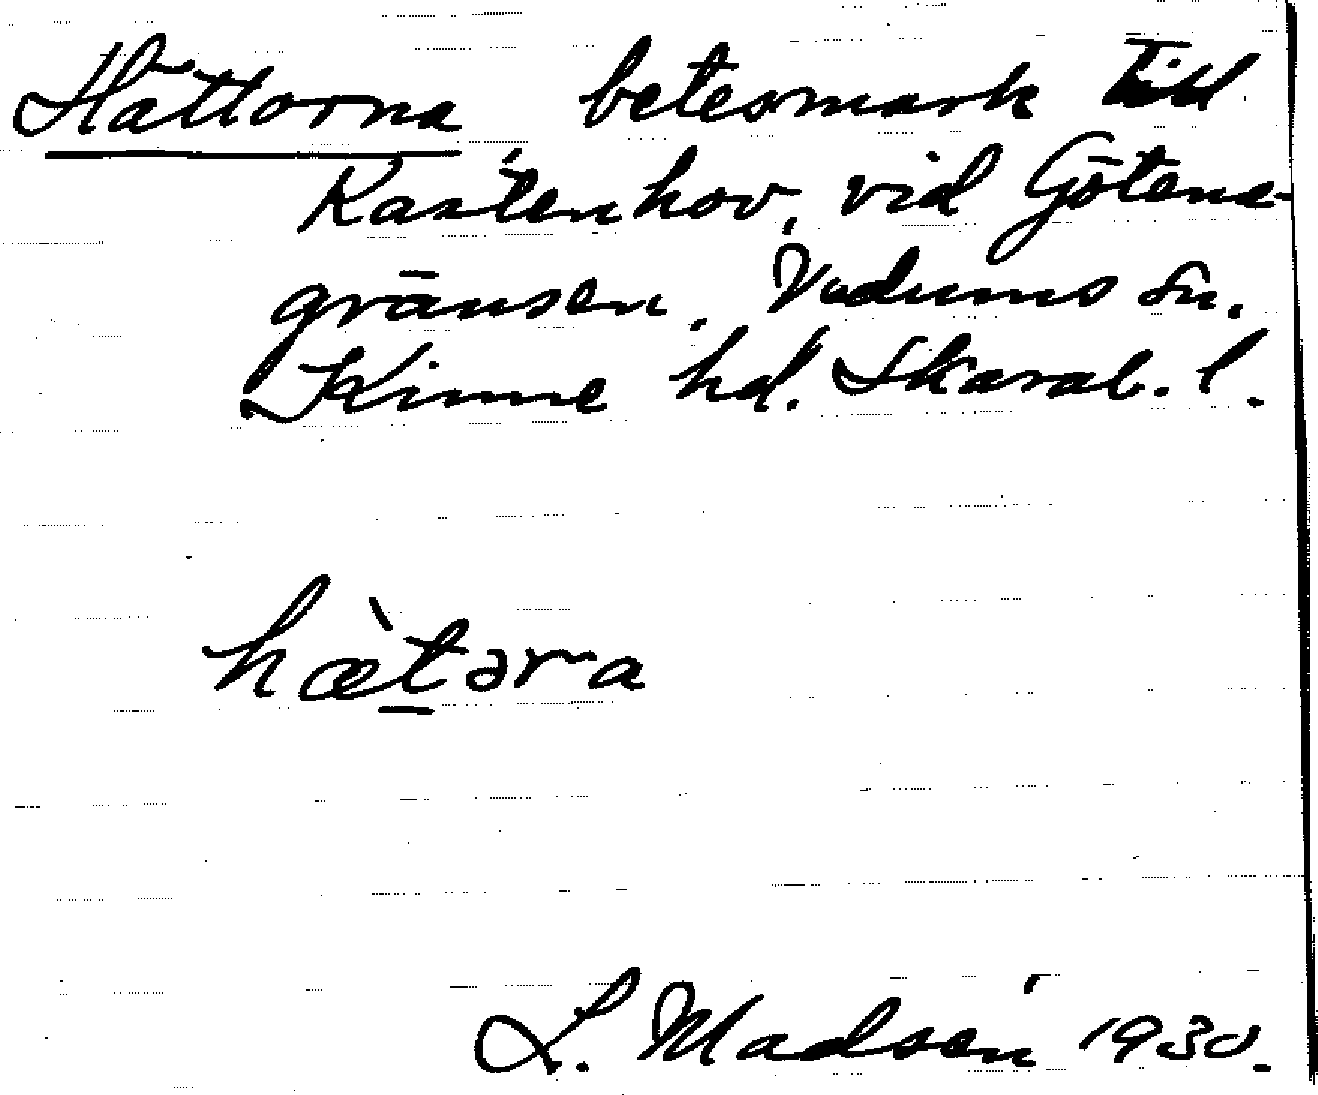 Hättorna, betesmark till
Kastenhov, vid Götene-
gränsen, Vadums sn.
Kinne hd. Skarab. l.
hæ̀təra
L. Madsén 1930.